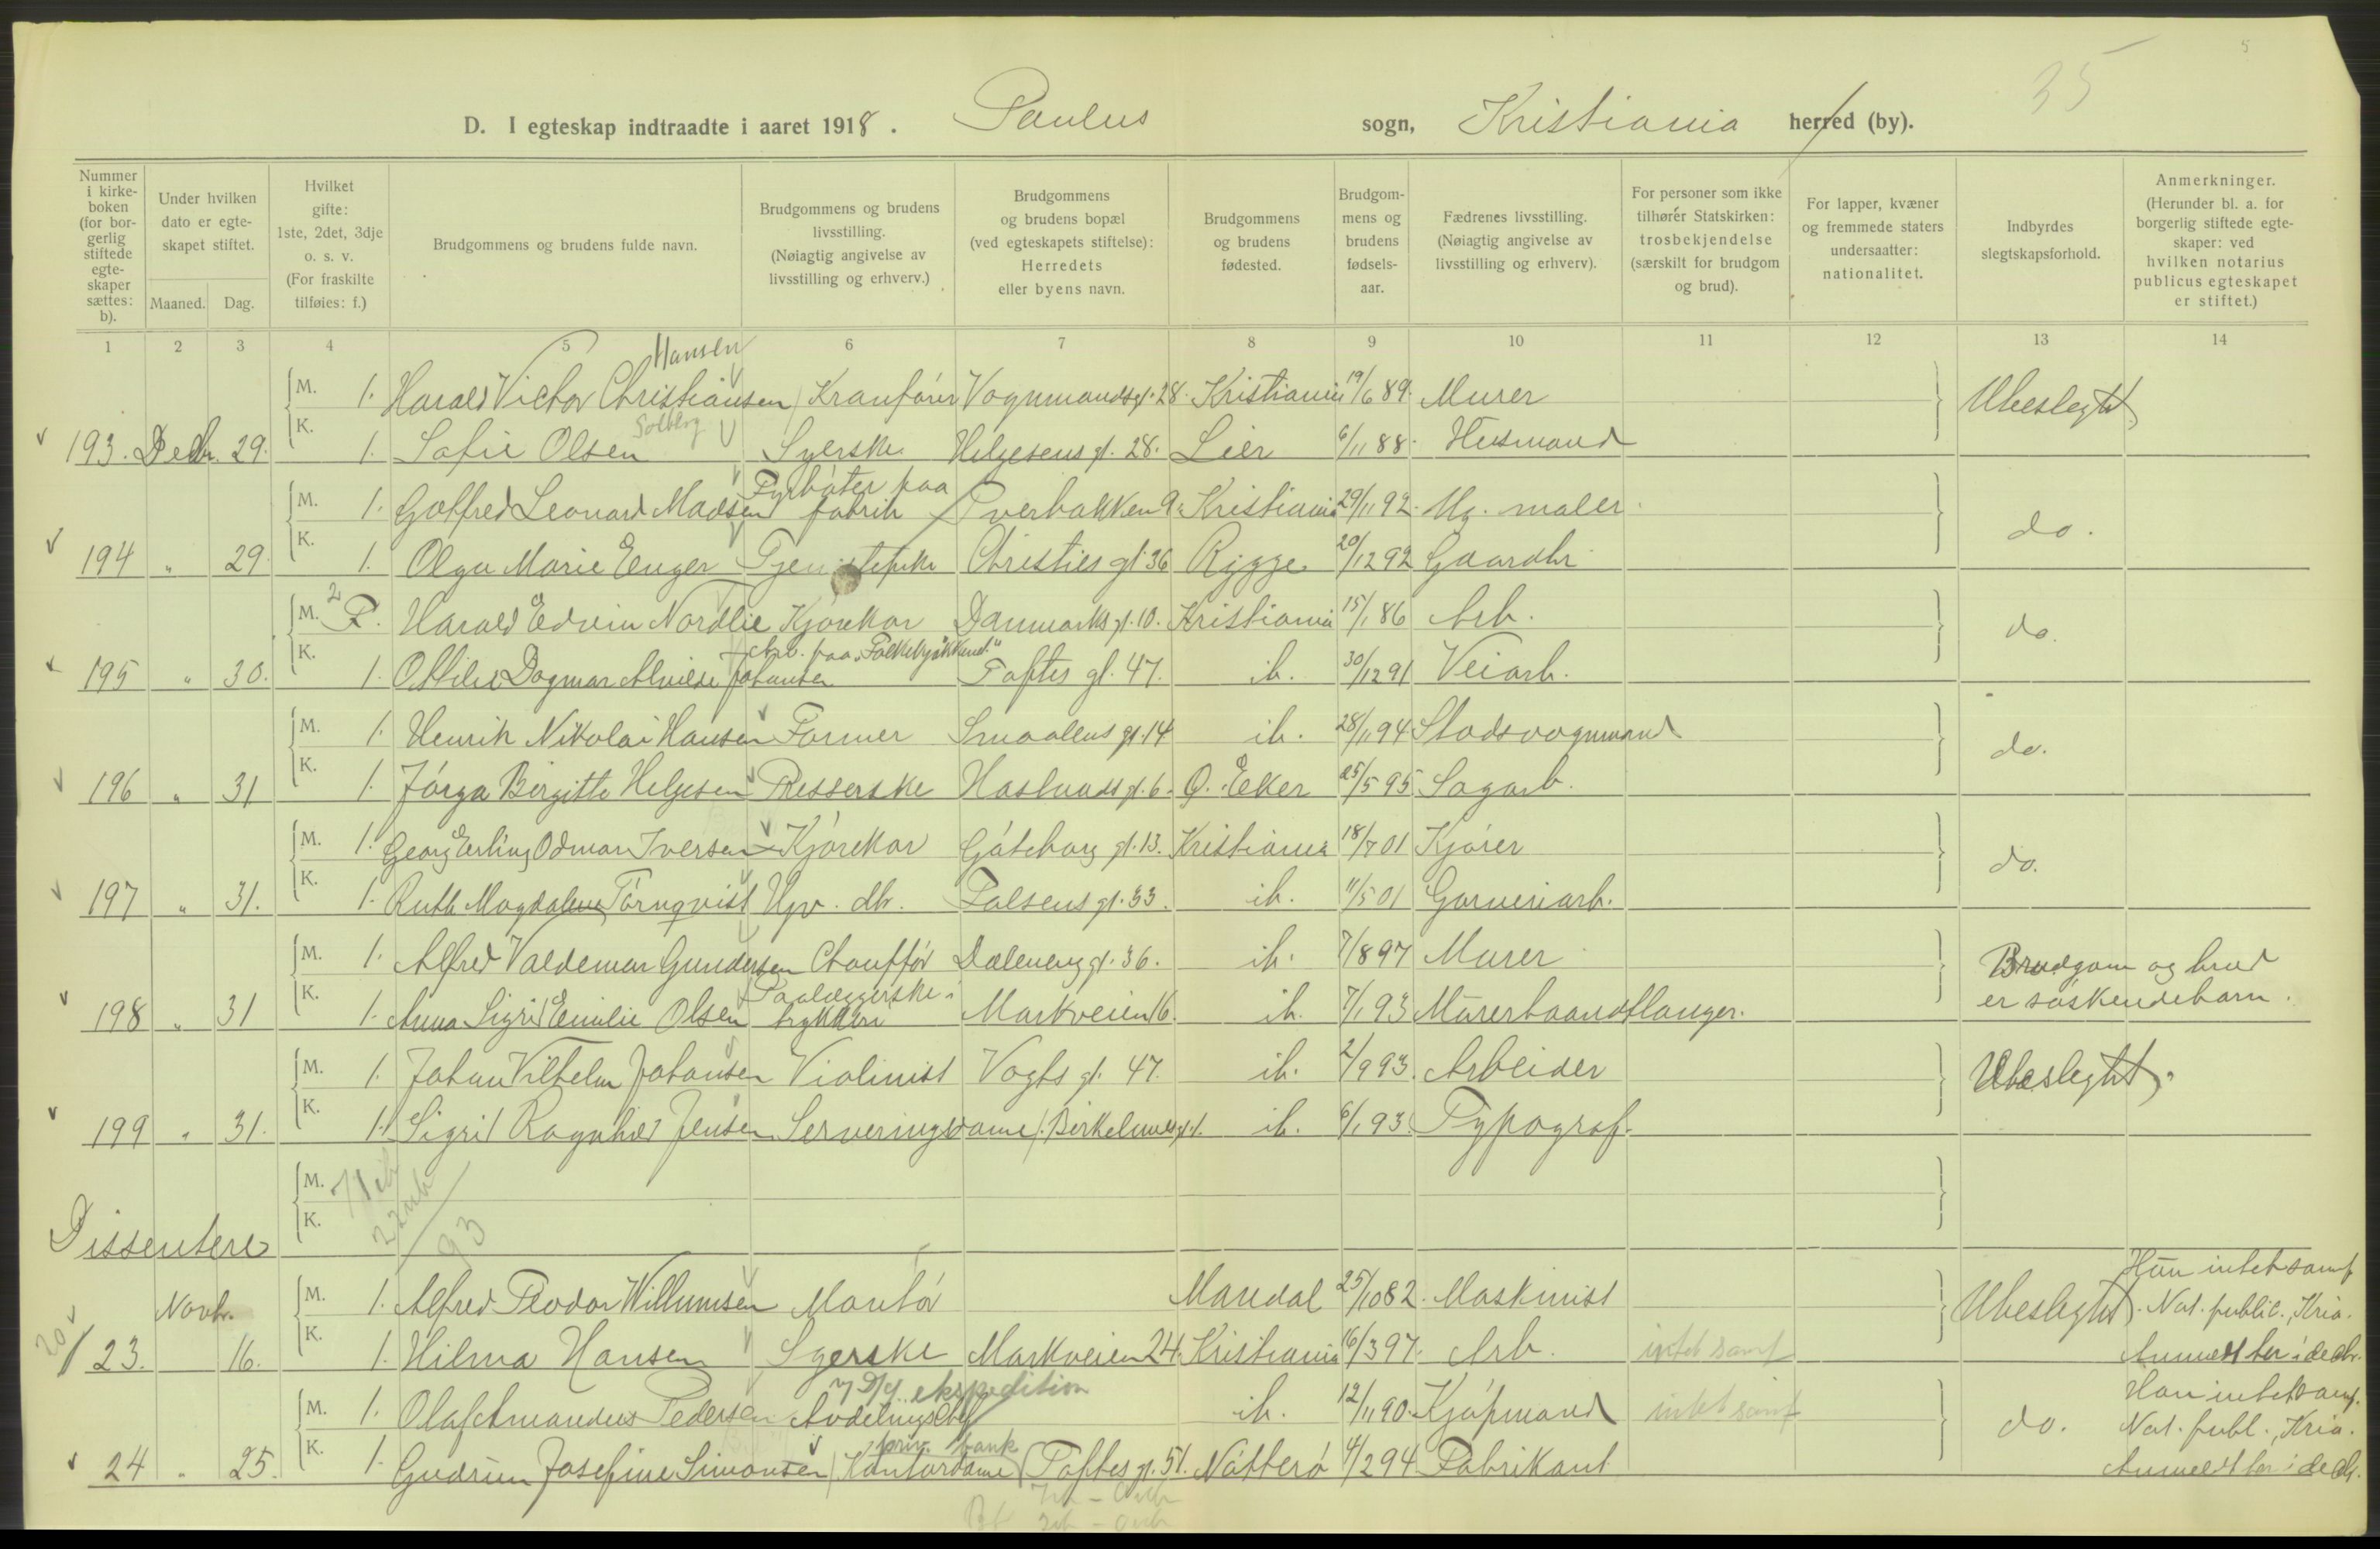 D. I egteskap indtraadte i aaret 1918. Paulus sogn, Kristiania herred (by). 35
Nummer i kirke-boken (for bor-gerlig stiftede egte-skaper sættes: b).
Under hvilken dato er egte-skapet stiftet.
Maaned. Dag.
Hvilket gifte: 1ste, 2det, 3dje o. s. v. (For fraskilte tilføies: f.)
Brudgommens og brudens fulde navn.
Brudgommens og brudens livsstilling. (Nøiagtig angivelse av livsstilling og erhverv.)
Brudgommens og brudens bopæl (ved egteskapets stiftelse): Herredets eller byens navn.
Brudgommens og brudens fødested.
Brudgom-mens og brudens fødsels-aar.
Fædrenes livsstilling. (Nøiagtig angivelse av livsstilling og erhverv).
For personer som ikke tilhører Statskirken: trosbekjendelse (særskilt for brudgom og brud).
For lapper, kvæner og fremmede staters undersaatter: nationalitet.
Indbyrdes slegtskapsforhold.
Anmerkninger. (Herunder bl. a. for borgerlig stiftede egte-skaper: ved hvilken notarius publicus egteskapet er stiftet.)
1 2 3 4 5 6 7 8 9 10 11 12 13 14
Hansen
M. 1. Harald Victor Christiansen Kranfører Vognmandsgt. 28. Kristiania 19/6 89. Murer Ubeslegtet
Solberg
193. Decbr. 29. K. 1. Sofie Olsen Syerske Helgesens gt. 28. Lier 6/11 88. Husmand
Fyrbøter paa
M. 1. Gotfred Leonard Madsen fabrik Tverbakken 9. Kristiania 29/11 92. Ug. maler do.
194 " 29. K. 1. Olga Marie Enger Tjenestepike Christies gt. 36 Rygge 20/12 92 Gaardbr.
M. 2 F. Harald Edvin Nordlie Kjørekar Danmarks gt. 10. Kristiania 15/1 86 Arb. do.
Arb. paa "Folkekjøkkenet"
195 " 30. K. 1. Ottilie Dagmar Alvilde Johansen Toftes gt. 47. ib. 30/12 91 Veiarb.
M. 1. Henrik Nikolai Hansen Former Smaalens gt. 14 ib. 28/11 94 Stadsvognmand do.
196 " 31 K. 1. Jørga Birgitte Helgesen Presserske Haslunds gt. 6. Ø. Eker 25/5 95 Sagarb.
M. 1. Georg Erling Odmar Iversen Kjørekar Gøteborg gt. 13. Kristiania 18/7 01 Kjører do.
197 " 31. K. 1. Ruth Magdalene Törnqvist Hjv. dtr. Falsens gt. 33. ib. 11/5 01 Garveriarb.
M. 1. Alfred Valdemar Gundersen Chauffør Dælenenggt. 36. ib. 7/8 97 Murer Brudgom og brud
Paalæggerske i
198 " 31 K. 1. Anna Sigrid Emilie Olsen trykkeri Markveien 16. ib. 7/1 93 Murerhaandtlanger. er søskendebarn.
M. 1. Johan Vilhelm Johansen Violinist Vogts gt. 47. ib. 2/9 93. Arbeider Ubeslegtet.
199 " 31. K. 1. Sigrid Ragnhild Jensen Serveringsdame Birkelunds gt. 1. ib. 6/1 93. Typograf.
M.
K.
93
Dissentere
Hun intet samf.
Novbr. M. 1. Alfred Teodor Willumsen Montør Mandal 25/10 82. Maskinist Ubeslegtet. Not. public., Kria.
23. 16. K. 1. Hilma Hansen Syerske Markveien 24. Kristiania 16/3 97. Arb. intet samf. Anmeldt her i decbr.
ekspedition Han intet samf.
M. 1. Olaf Amandus Pedersen Avdelingschef ib. 12/11 90. Kjøpmand intet samf. do. Not. publ., Kria.
priv. bank
24 " 25. K. 1. Gudrun Josefine Simonsen Kontordame Toftes gt. 51. Nøtterø 4/2 94 Fabrikant Anmeldt her i decbr.